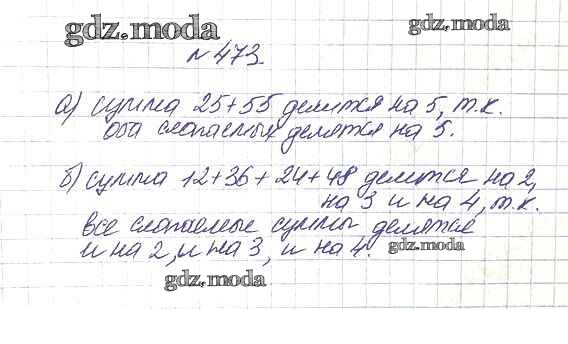 gdz.moda
gdz.moda
№ 473.
а) сумма 25+55 делится на 5, т.к.
оба слагаемых делятся на 5.
б) сумма 12+36+24+48 делится на 2,
на 3 и на 4, т.к.
все слагаемые суммы делятся
и на 2, и на 3, и на 4.
gdz.moda
gdz.moda